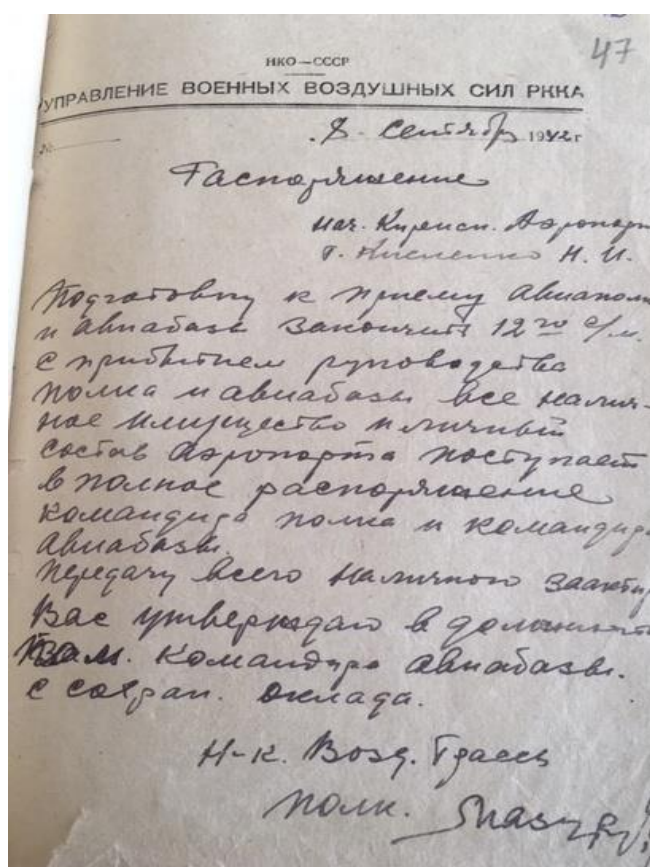 47
НКО—СССР
УПРАВЛЕНИЕ ВОЕННЫХ ВОЗДУШНЫХ СИЛ РККА
№
8 Сентябр 1942 г
Распоряжение
Нач. Киренск. Аэропорт
т. Н. И.
Подготовку к приему Авиаполк
и авиабазы закончить 12го с/м.
С прибытием руководства
полка и авиабазы все налич-
ное имущество и личный
состав Аэропорта поступает
в полное распоряжение
командира полка и командира
авиабазы.
Передачу всего наличного
Вас утверждаю в должности
Зам. командира авиабазы.
с сохран. оклада.
Н-к. Возд. Трассы
полк. Мазур